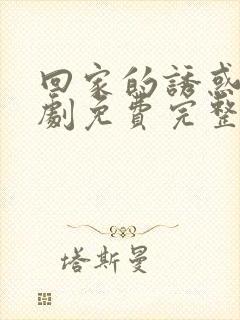 回家的誘惑
劇免費完整
塔斯曼